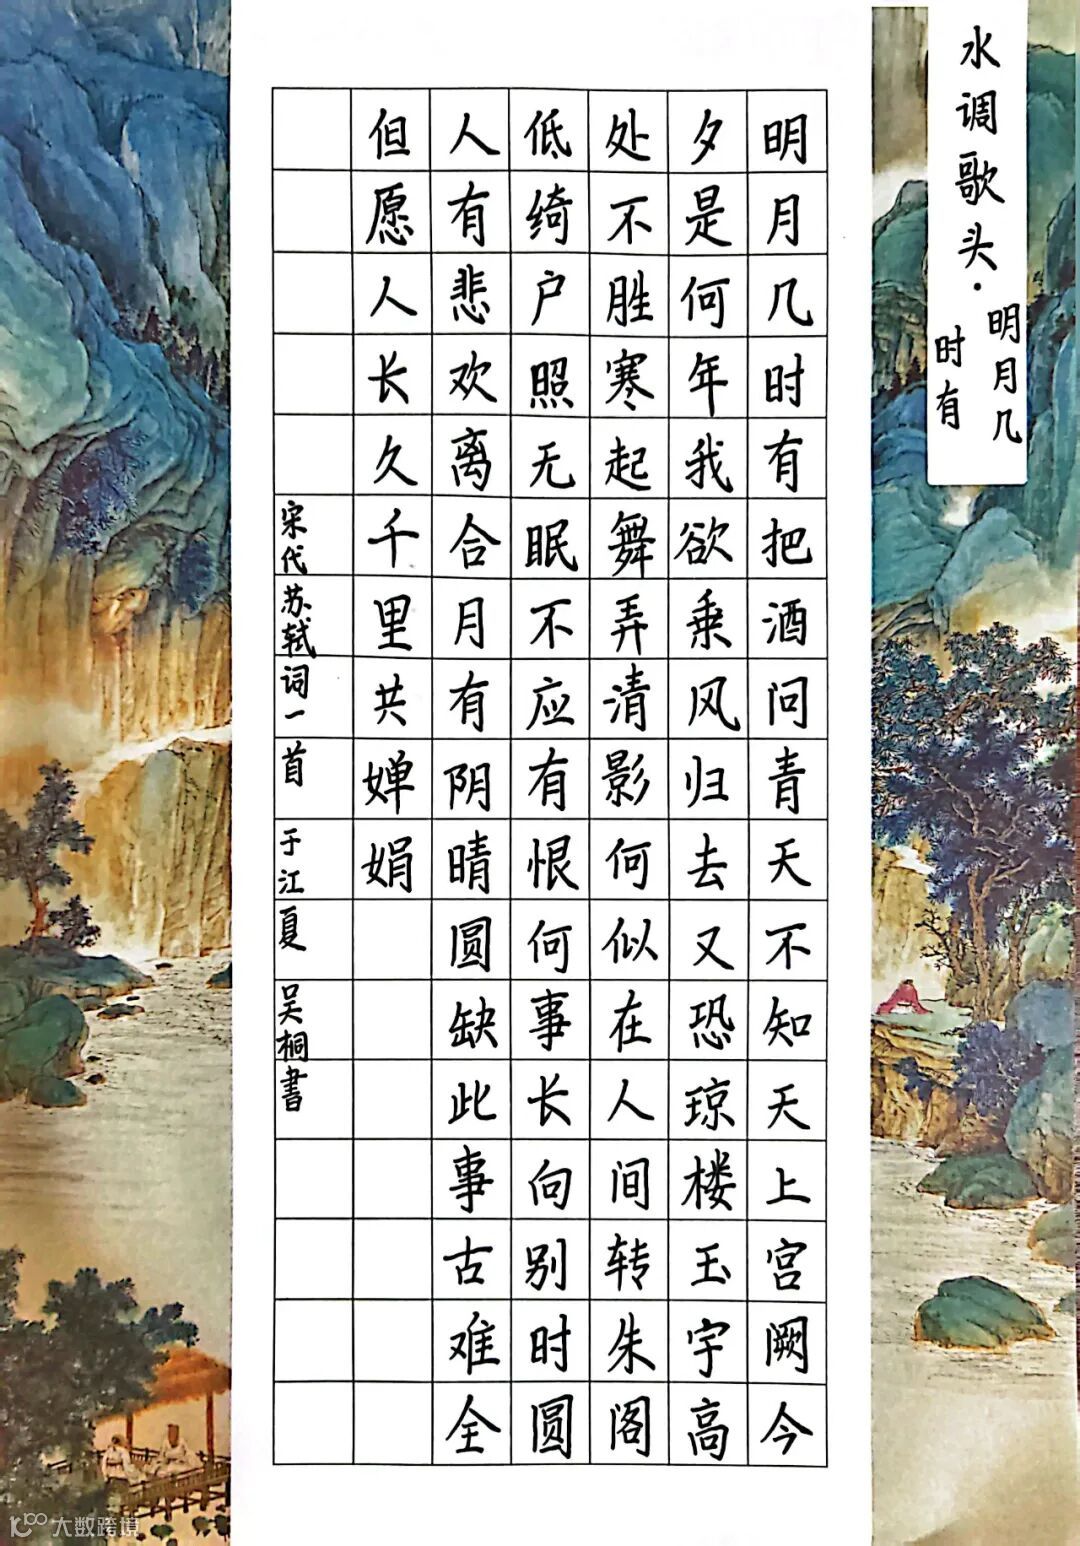 水调歌头·
明月几
时有
明月几时有把酒问青天不知天上宫阙今
夕是何年我欲乘风归去又恐琼楼玉宇高
处不胜寒起舞弄清影何似在人间转朱阁
低绮户照无眠不应有恨何事长向别时圆
人有悲欢离合月有阴晴圆缺此事古难全
但愿人长久千里共婵娟
宋代苏轼词一首 于江夏 吴桐書
大数跨境